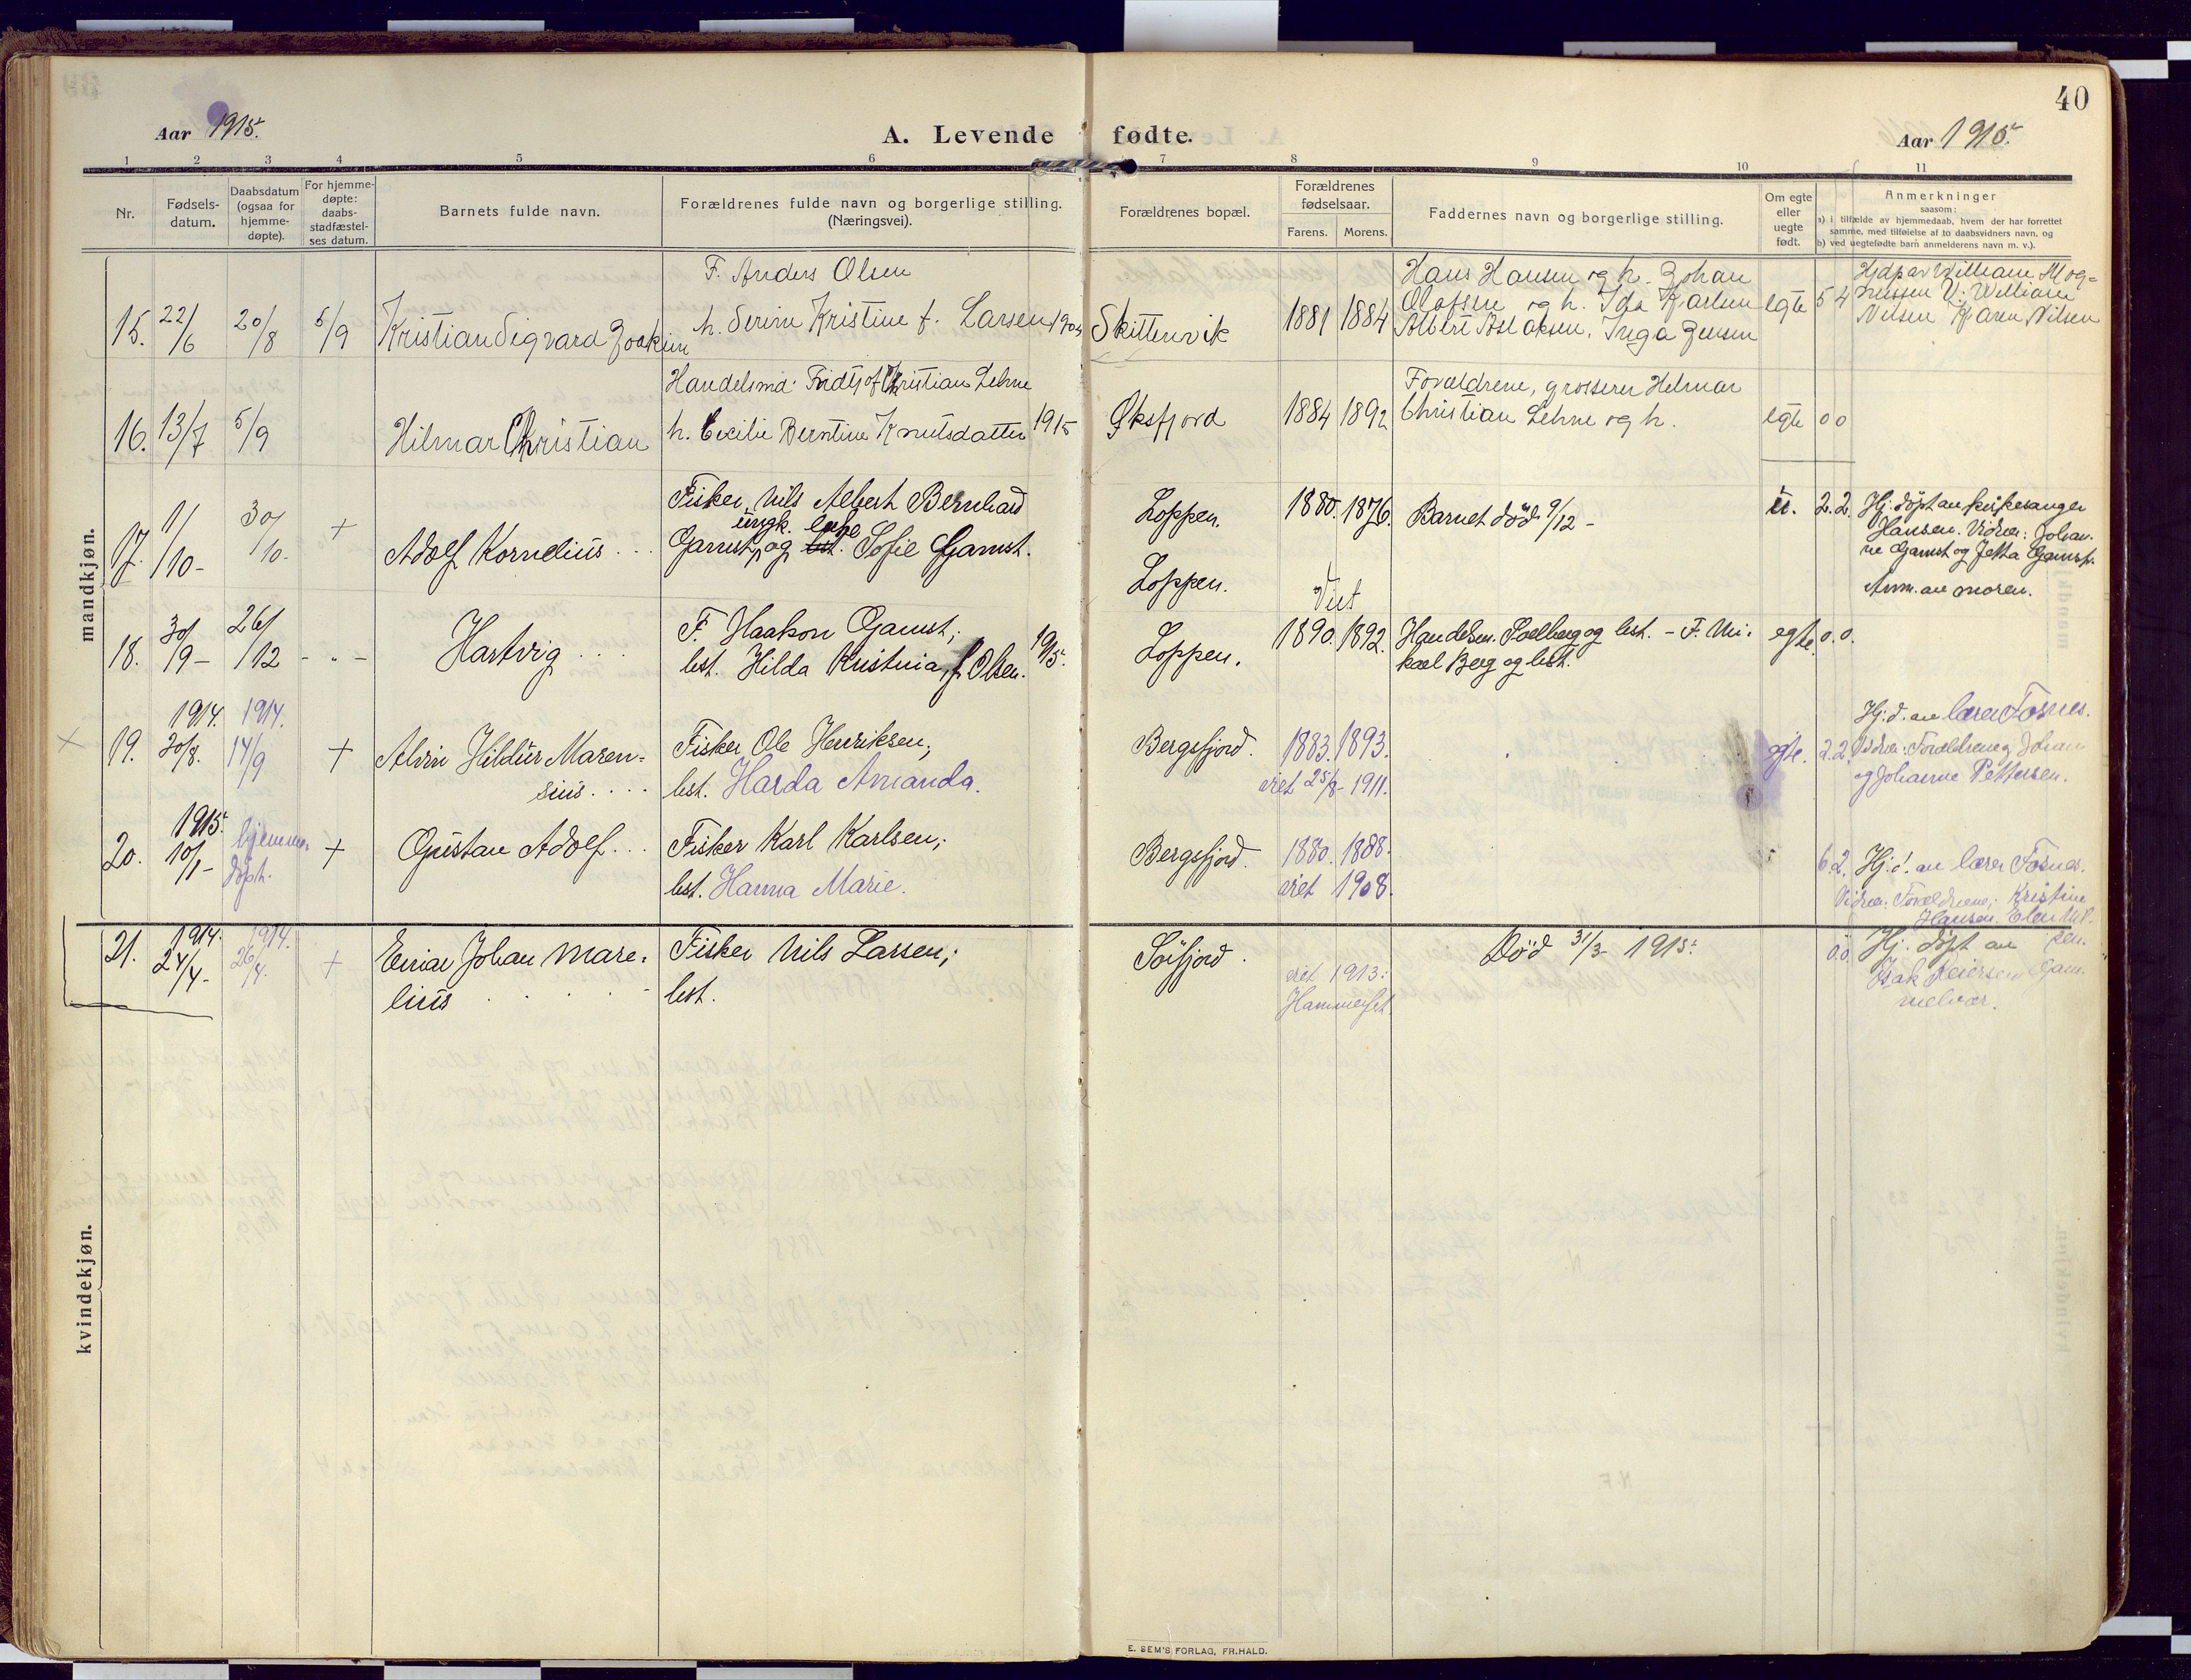 40
Aar 1915.
A. Levende fødte.
Aar 1915.
1 2 3 4 5 6 7 8 9 10 11
Nr.
Fødsels-
datum.
Daabsdatum
(ogsaa for
hjemme-
døpte).
For hjemme-
døpte:
daabs-
stadfæstel-
ses datum.
Barnets fulde navn.
Forældrenes fulde navn og borgerlige stilling.
(Næringsvei).
Forældrenes bopæl.
Forældrenes
fødselsaar.
Farens. Morens.
Faddernes navn og borgerlige stilling.
Om egte
eller
uegte
født.
Anmerkninger
saasom:
a) i tilfælde av hjemmedaab, hvem der har forrettet
samme, med tilføielse af to daabsvidners navn, og
b) ved uegtefødte barn anmelderens navn m. v.).
mandkjøn.
15. 22/6 20/8 5/9 Kristian Sigvard Joakim
F. Anders Olsen
h. Serine Kristine f. Larsen 1904
Skittenvik 1881 1884
Hans Hansen og h. Johan
Olafsen og h. Ida Karlsen
Albert Aslaksen, Inga Jensen
egte 5 4
Hjdp av William Mog-
nussen V: William
Nilsen Karen Nilsen
16. 13/7 5/9 Hilmar Christian
Handelsmd: Fridtjof Christian Lehne
h. Cecilie Berntine Knutsdatter 1915
Øksfjord 1884 1892
Forældrene, grosserer Helmar
Christian Lehne og h.
egte 0 0
17. 1/10- 30/10- + Adolf Kornelius . . .
Fisker, Nils Albert Bernhard
ungk.
Gamst, og Sofie Gamst.
Loppen.
Loppen.
1880. 1876. Barnet död 9/12 -
u. 2.2.
Hj. döpt av kirkesanger
Hansen. Vidner: Johan-
ne Gamst og Jetta Gamst.
Anm. av moren.
18. 30/9- 26/12 - " - Hartvig . . .
F. Haakon Gamst;
hst. Hilda Kristina, f. Olsen. 1915.
Loppen.
Viet
1890. 1892.
Handelsm. Soelberg og hst. - F. Mi-
kael Berg og hst.
egte. 0.0.
19. 1914. 30/8. 1914. 14/9 + Alvin Hildur Maren-
sius . . . .
Fisker Ole Henriksen;
hst. Harda Amanda.
Bergsfjord. 1883. 1893.
viet 25/8- 1911.
egte. 2.2
Hj. d. av lærer Fosnes.
Vidner: Forældrene, Johan
og Johanne Pettersen.
20. 1915. 10/1- hjemme-
döpt. + Gustav Adolf . . .
Fisker Karl Karlsen;
hst. Hanna Marie.
Bergsfjord. 1880. 1888.
viet 1908.
6 2.
Hj. d. av lærer Fosnes.
Vidner: Forældrene; Kristine
Hansen. Elen Nil-
sen.
21. 1914. 24/4- 1914. 26/4. + Einar Johan Mare-
lius . . . . -
Fisker Nils Larsen;
hst.
Sörfjord.
viet 1913:
Hammerfest.
Död 31/3- 1915.
0.0
Hj. döpt av
Isak Reiersen Gam-
melvær.
kvindekjøn.
E. SEM'S FORLAG, FR.HALD.